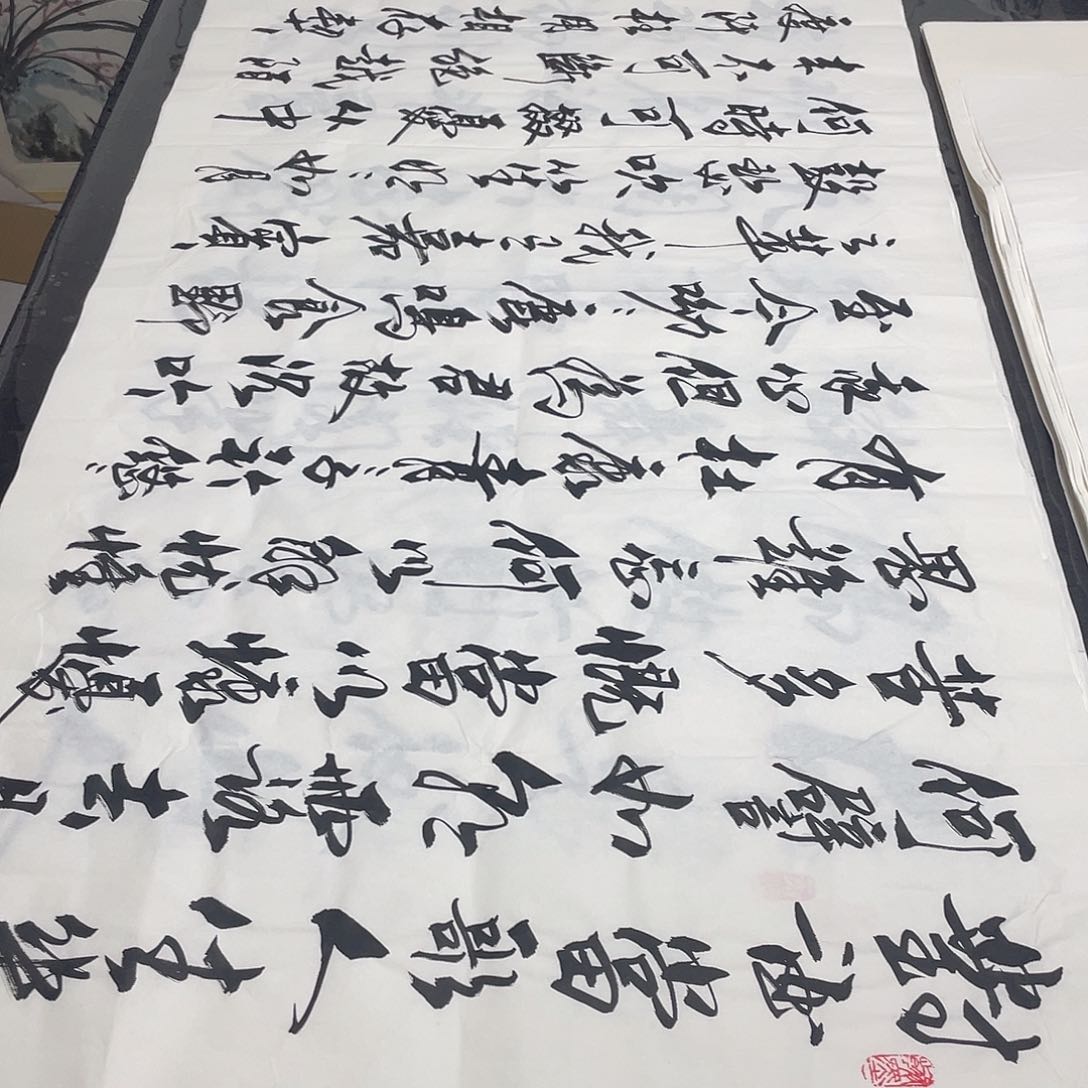 對酒當歌人生幾
何譬如朝露去日
苦多慨當以慷憂
思難忘何以解忧惟
有杜康青青子衿悠
心但為君故沉吟
至今呦呦鹿鳴食野
之苹我有嘉賓
鼓瑟吹笙明明如月
何時可掇憂從中
来不可斷絕越陌
度阡枉用相存契